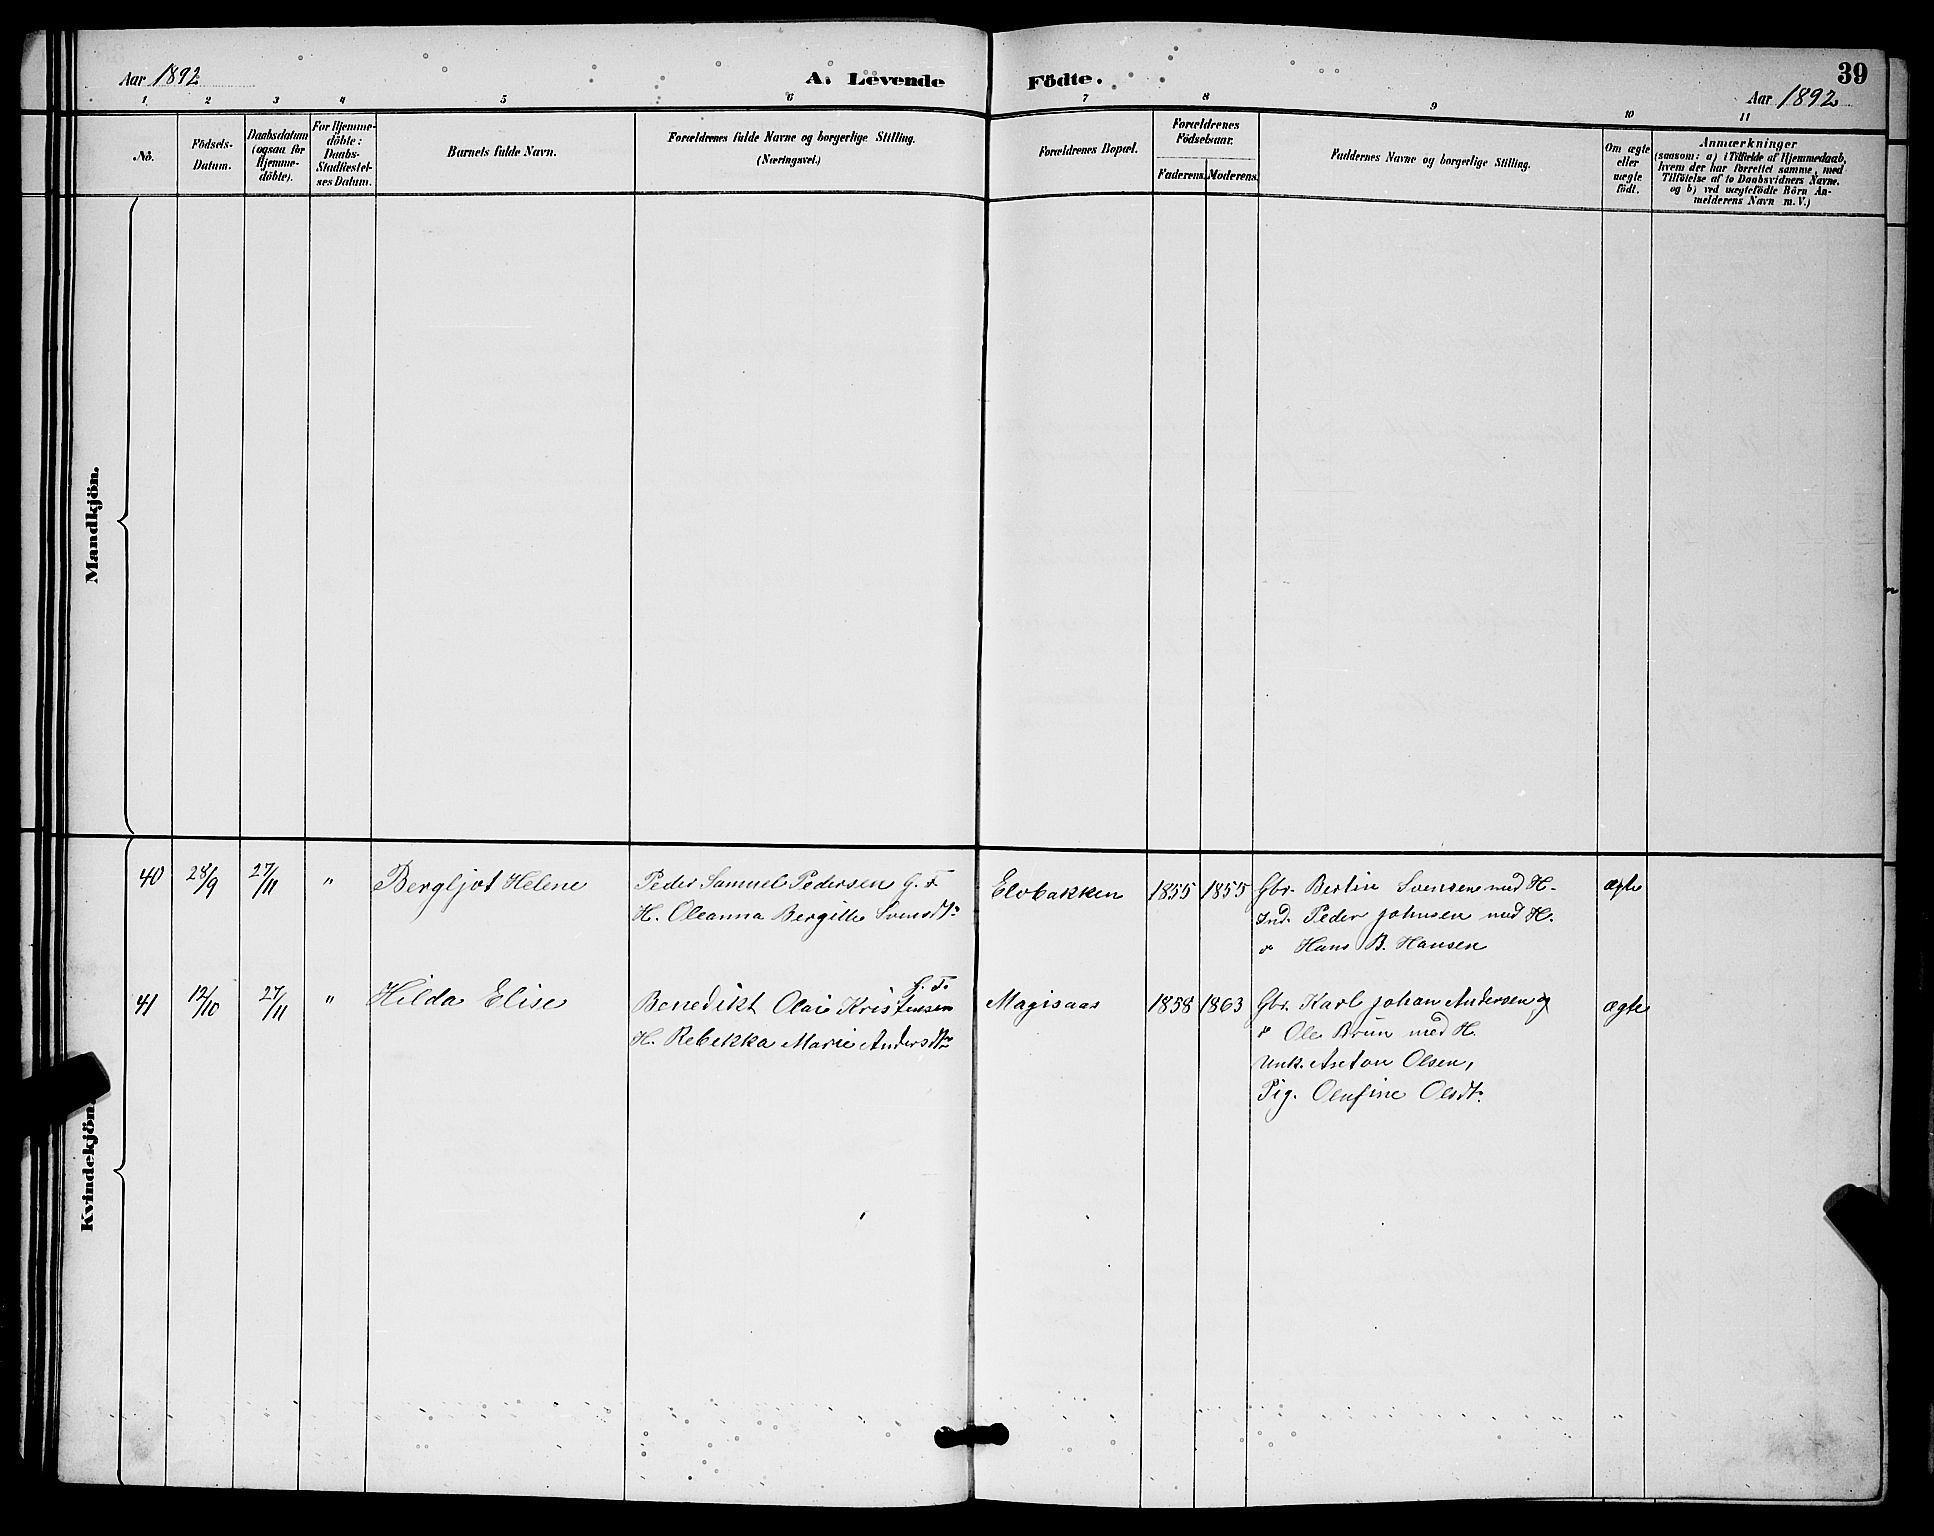 Aar 1892 A. Levende Födte. 39
Aar 1892
1 2 3 4 5 6 7 8 9 10 11
No.
Födsels-
Datum.
Daabsdatum
(ogsaa for
Hjemme-
döbte).
For Hjemme-
döbte:
Daabs-
Stadfæstel-
ses Datum.
Barnets fulde Navn.
Forældrenes fulde Navne og borgerlige Stilling.
(Næringsvei.)
Forældrenes Bopæl.
Forældrenes
Födselsaar.
Faderens. Moderens.
Faddernes Navne og borgerlige Stilling.
Om ægte
eller
uægte
födt.
Anmærkninger
(saasom: a) i Tilfælde af Hjemmedaab,
hvem der har forrettet samme, med
Tilföielse af to Daabsvidners Navne.
og b) ved uægtefödte Börn An-
melderens Navn m. V.)
Mandkjön.
Kvindekjön.
40 28/9 27/11 " Bergljot Helene Peder Samuel Pedersen G. F. Elvbakken 1855 1855 Gbr. Bertin Svensen med H. ægte
H. Oleanna Bergitte Svensdtr Ind. Peder Johnsen med H.
" Hans B. Hansen
41 12/10 27/11 " Hilda Elise Benedikt Olai Kristensen G. F. Magisaas 1858 1863 Gbr. Karl Johan Andersen og ægte
H. Rebekka Marie Andersdtr " Ole Brun med H.
Unk. Anton Olsen,
Pig. Olufine Olsdtr